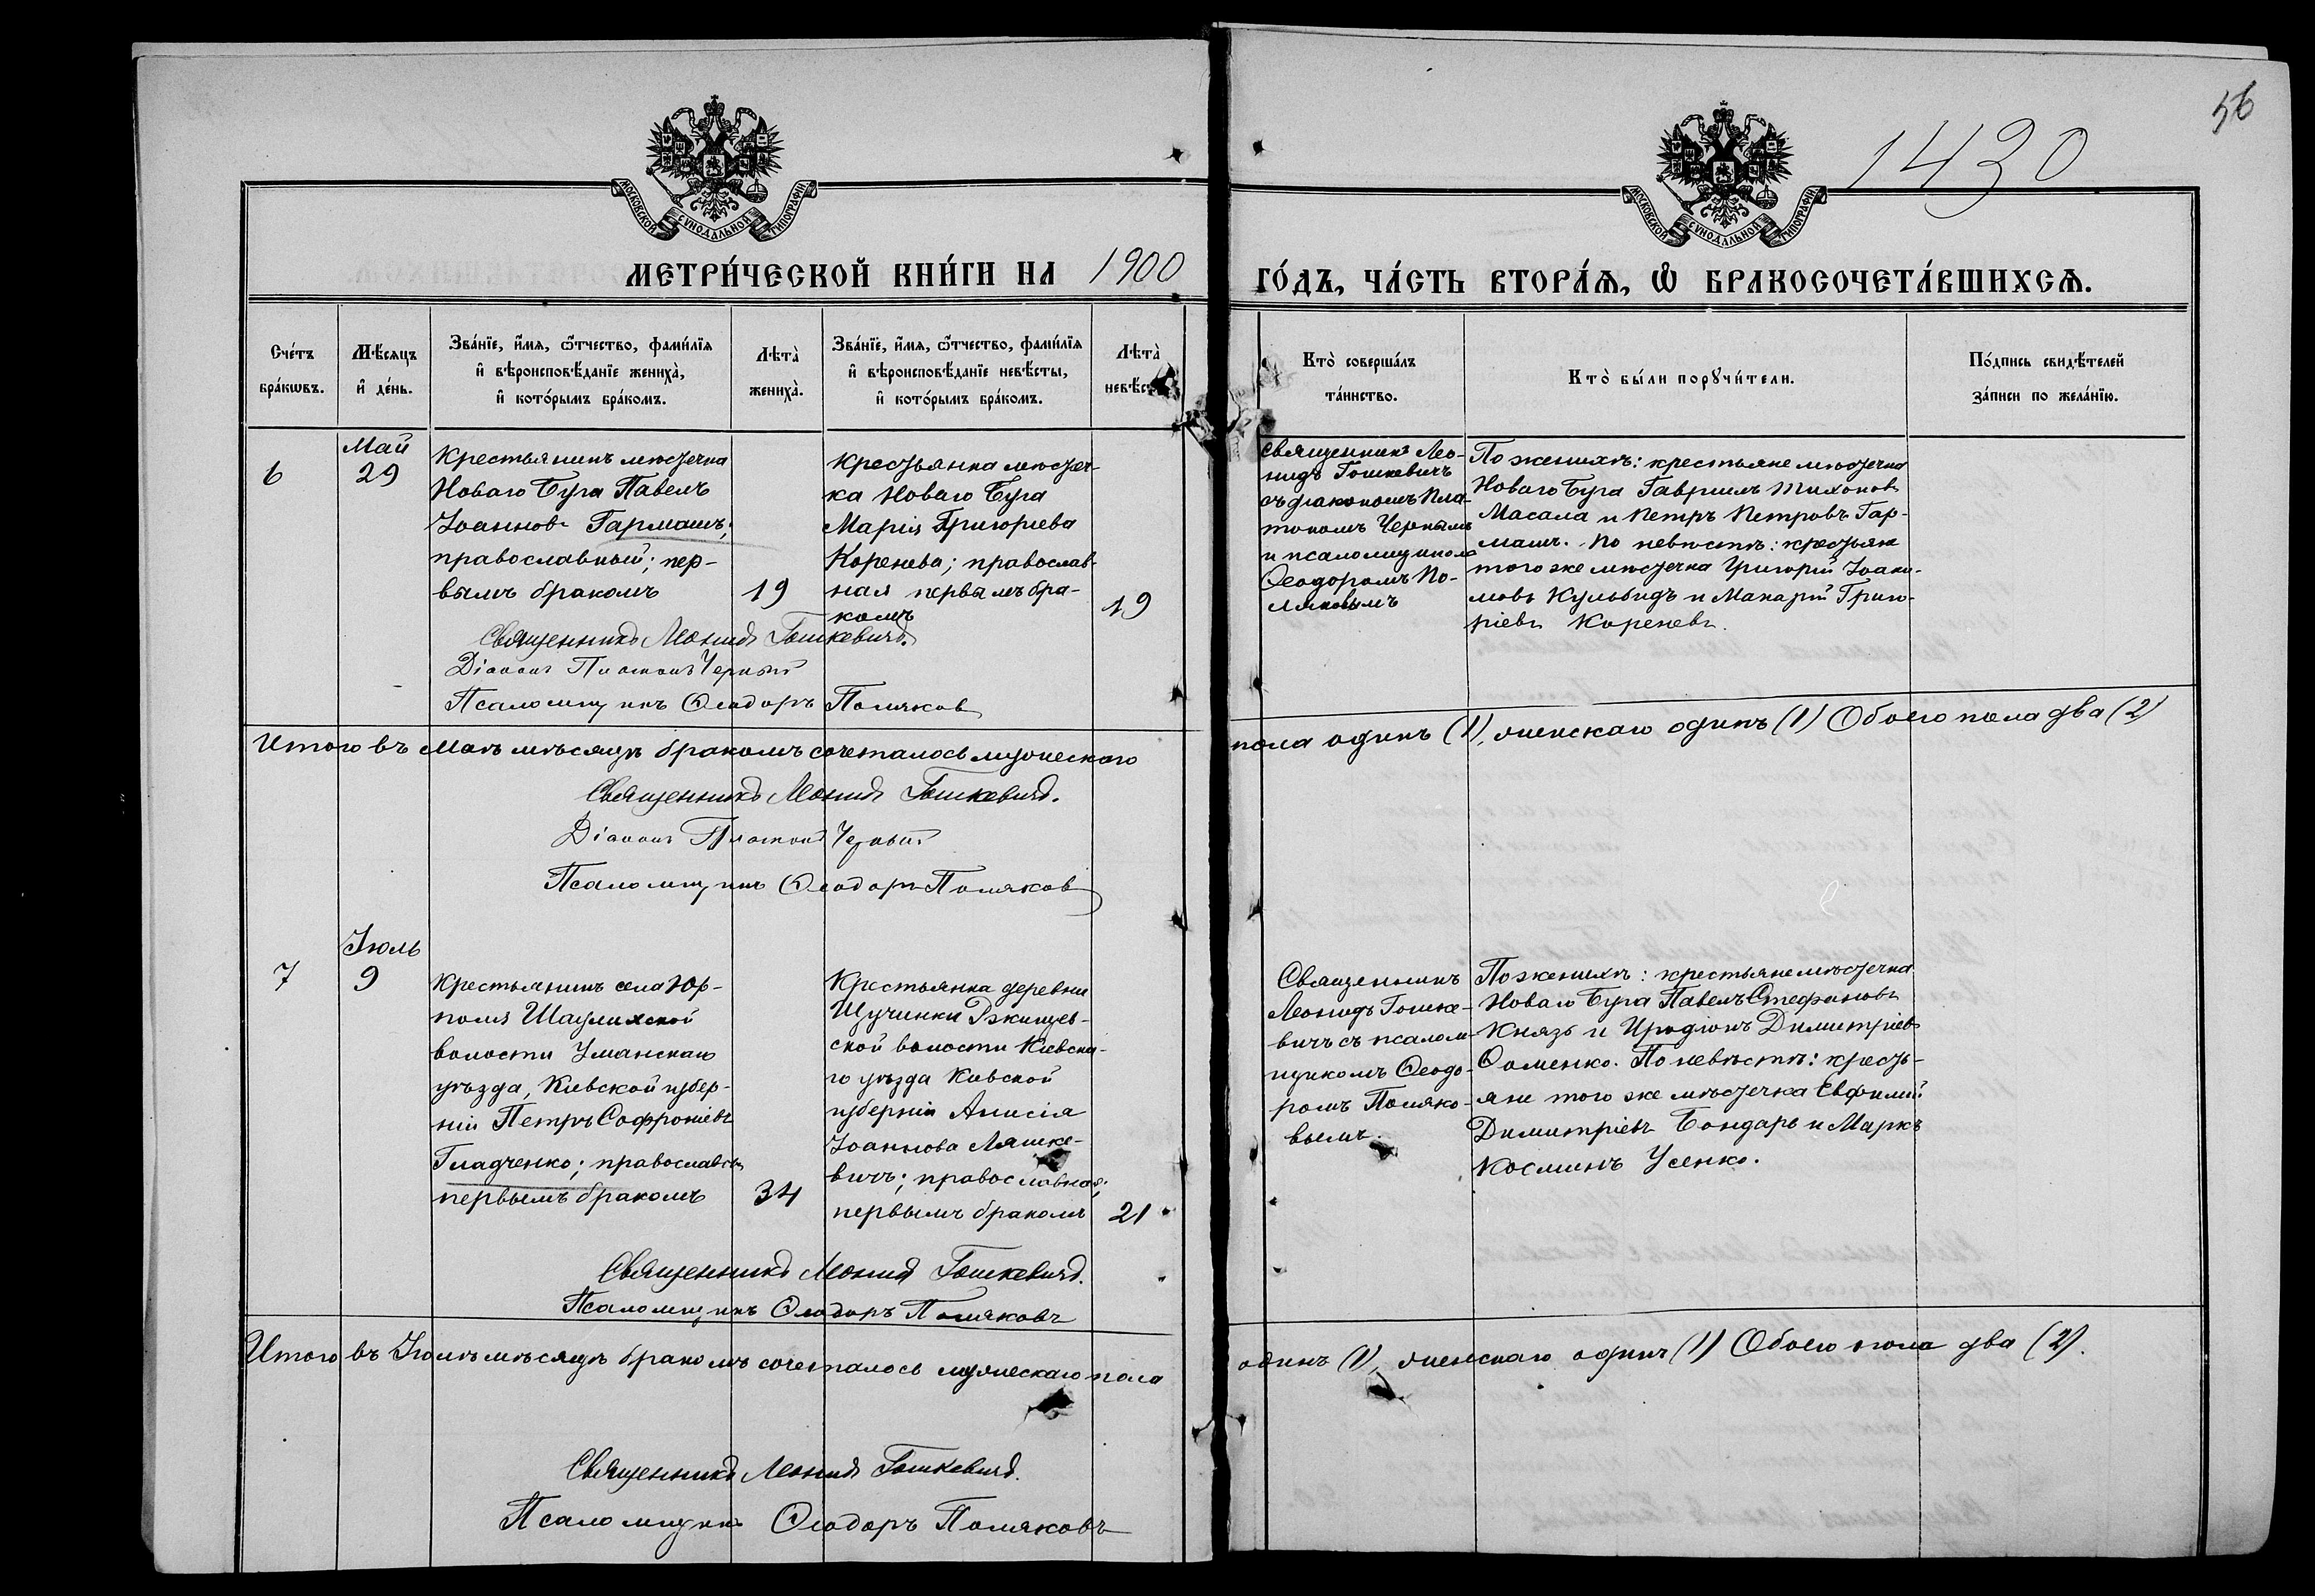 56
1430
МОСКОВСКОЙ СѴНОДАЛЬНОЙ ТИПОГРАФІИ
МОСКОВСКОЙ СѴНОДАЛЬНОЙ ТИПОГРАФІИ
МЕТРИ́ЧЕСКОЙ КНИ́ГИ НА 1900 ГО́ДЪ, ЧА́СТЬ ВТОРА́Ѧ, Ѽ БРАКОСОЧЕТА́ВШИХСѦ.
Сче́тъ
бра́кѡвъ.
Мѣ́сяцъ
и҆ де́нь.
Зва́нїе, и҆́мѧ, ѻ҆́тчество, фами́лїѧ
и҆ вѣроисповѣ́данїе жениха̀,
и҆ кото́рымъ бра́комъ.
Лѣта̀
жениха̀.
Зва́нїе, и҆́мѧ, ѻ҆́тчество, фами́лїѧ
и҆ вѣроисповѣ́данїе невѣ́сты,
и҆ кото́рымъ бра́комъ.
Лѣта̀
невѣ́ст
Кто̀ соверша́лъ
та́инство.
Кто̀ бы́ли порꙋчи́тели.
По́дпись свидѣ́телей
за́писи по жела́нїю.
6
Май
29
Крестьянинъ мѣстечка
Новаго Буга Павелъ
Іоанновъ Гармашъ;
православный; пер-
вымъ бракомъ
19
Крестьянка мѣстеч-
ка Новаго Буга
Марія Григорьева
Коренева; православ-
ная первымъ бра-
комъ
19
Священникъ Лео-
нидъ Гошкевичъ
съ діакономъ Пла-
тономъ Чернымъ
и псаломщикомъ
Ѳеодоромъ По-
ляковымъ
По женихѣ: крестьяне мѣстечка
Новаго Буга Гавріилъ Тихоновъ
Масала и Петръ Петровъ Гар-
машъ. По невѣстѣ: крестьяне
того же мѣстечка Григорій Іоаки-
мовъ Кульбидъ и Макарій Григо-
ріевъ Кореневъ.
Священникъ Леонидъ Гошкевичъ.
Діаконъ Платонъ Черный
Псаломщикъ Ѳеодоръ Поляковъ
Итого въ Маѣ мѣсяцѣ бракомъ сочеталось мужескаго пола одинъ (1), женскаго одинъ (1) Обоего пола два (2)
Священникъ Леонидъ Гошкевичъ.
Діаконъ Платонъ Черный
Псаломщикъ Ѳеодоръ Поляковъ
7
Іюль
9
Крестьянинъ села Юр-
поля Шаулихской
волости Уманскаго
уѣзда, Кіевской губер-
ніи Петръ Софроніевъ
Гладченко; православн
первымъ бракомъ
34
Крестьянка деревни
Щучинки Ржищев-
ской волости Кіевска-
го уѣзда Кіевской
губерніи Анисія
Іоаннова Ляшке-
вичъ; православная;
первымъ бракомъ
21
Священникъ
Леонидъ Гошке-
вичъ съ псалом-
щикомъ Ѳеодо-
ромъ Поляко-
вымъ.
По женихѣ: крестьяне мѣстечка
Новаго Буга Павелъ Стефановъ
Князь и Иродіонъ Димитріевъ
Ѳоменко. По невѣстѣ: кресть-
яне того же мѣстечка Евфимій
Димитріевъ Бондарь и Маркъ
Косминъ Усенко.
Священникъ Леонидъ Гошкевичъ.
Псаломщикъ Ѳеодоръ Поляковъ
Итого въ Іюлѣ мѣсяцѣ бракомъ сочеталось мужескаго пола одинъ (1), женскаго одинъ (1) Обоего пола два (2).
Священникъ Леонидъ Гошкевичъ.
Псаломщикъ Ѳеодоръ Поляковъ